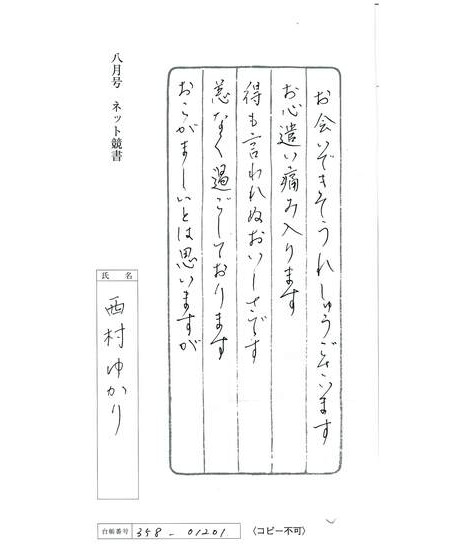 お会いできそうれしゅうございます
お心遣い痛み入ります
得も言われぬおいしさです
恙なく過ごしております
おこがましいとは思いますが
八月号 ネット競書
氏名
西村ゆかり
台帳番号 358-01201
〈コピー不可〉